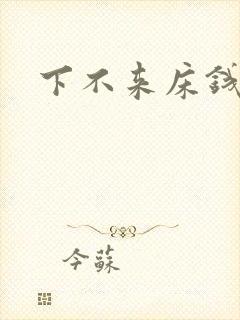 下不来床钱
今蘇